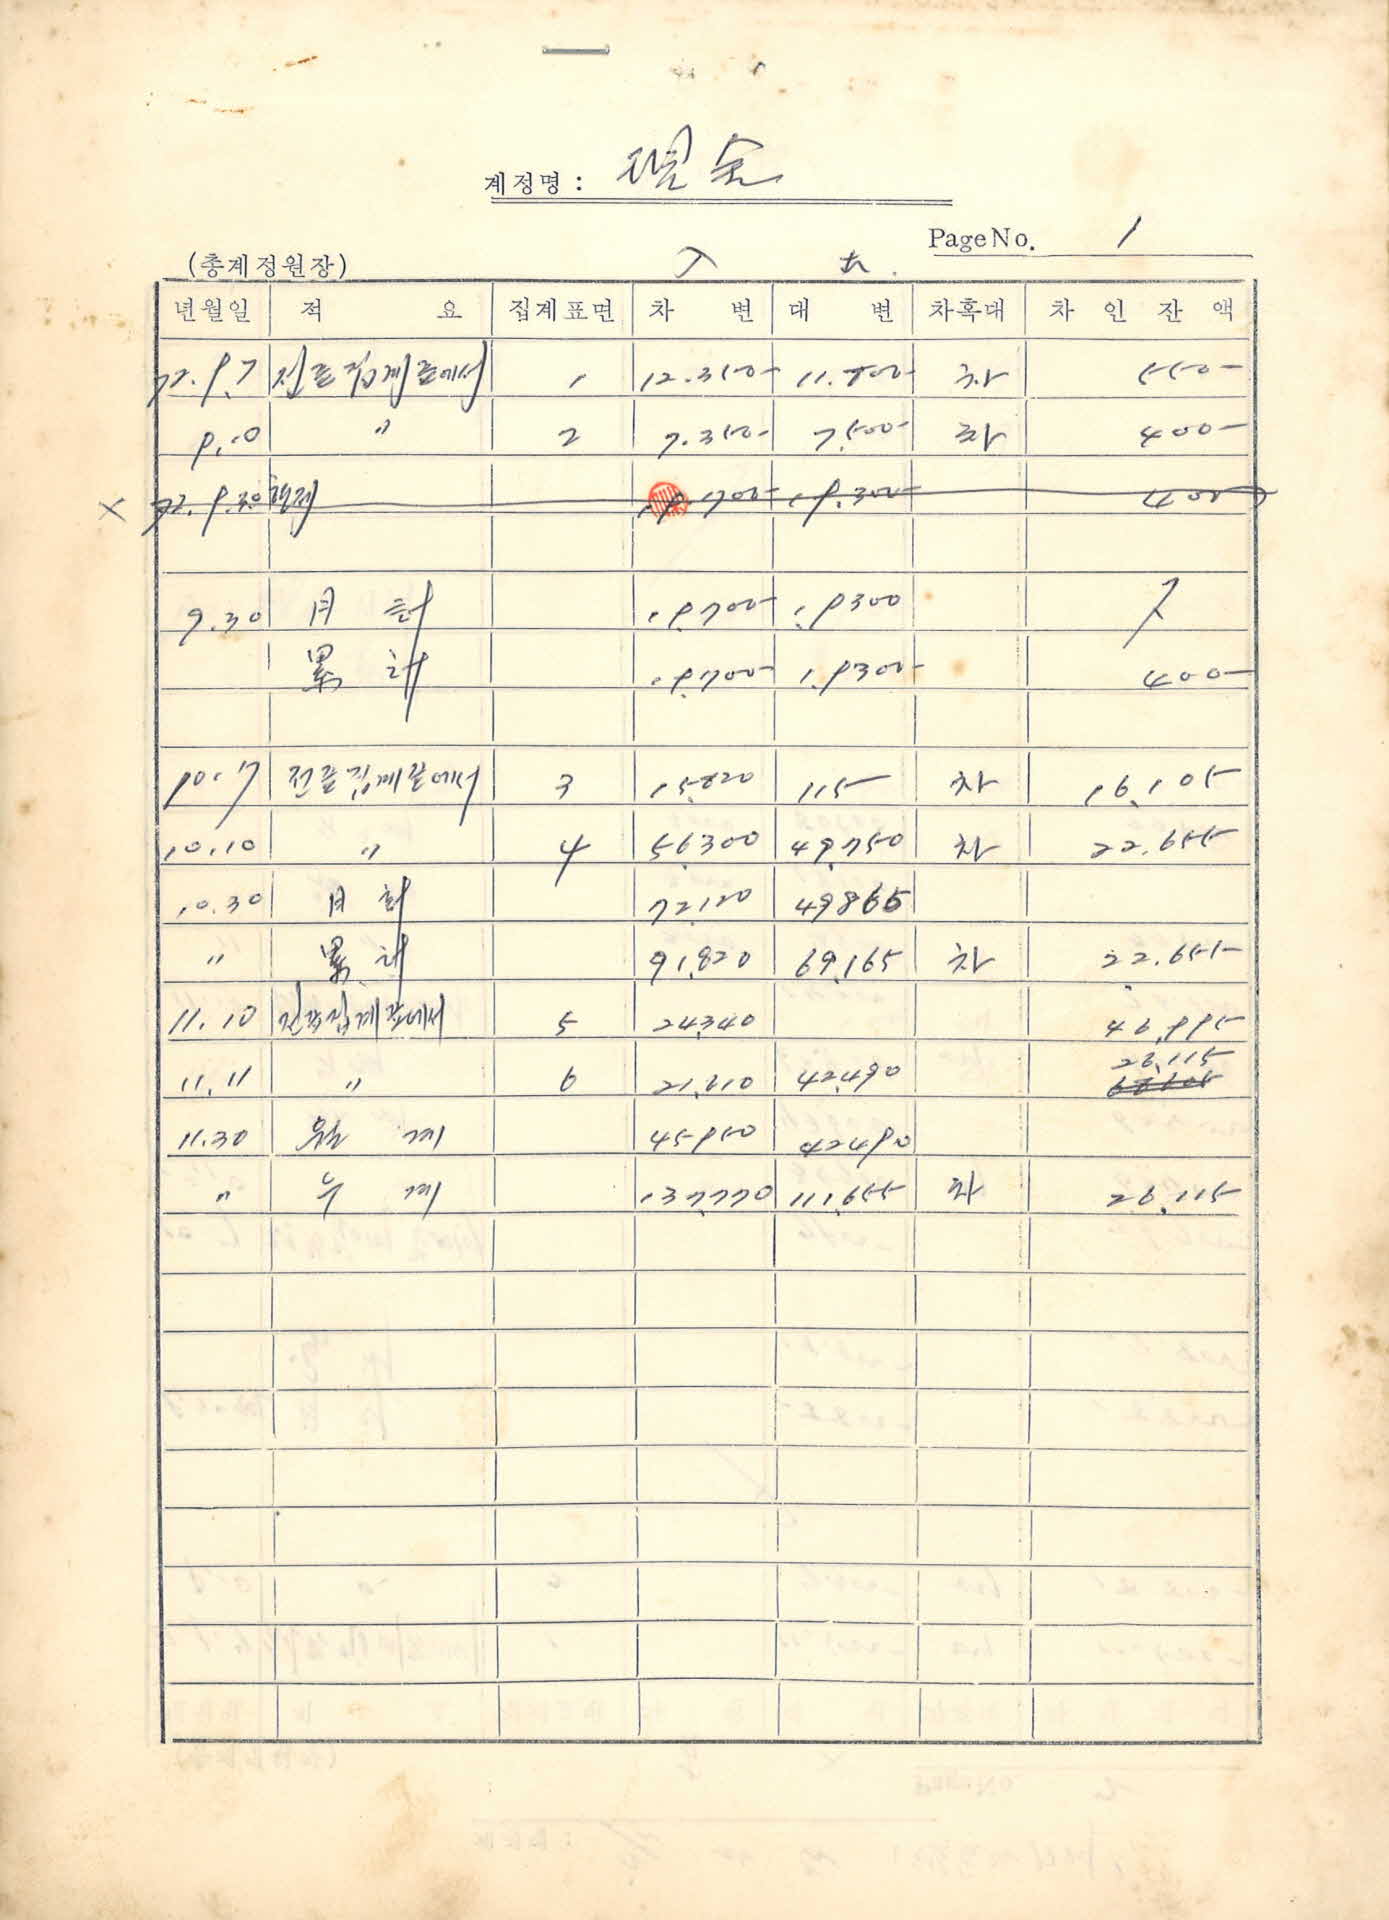 계정명 : 現金
Page No. 1
(총계정원장) 入 出
년월일 적 요 집계표면 차 변 대 변 차혹대 차 인 잔 액
72.9.7 전표집계표에서 1 12.350- 11.800- 차 550-
9.10 〃 2 7.350- 7.500- 차 400-
× 72.9.30 현재 19.700- 19.300- 400
9.30 月 計 19.700- 19.300
累 計 19.700- 19.300- 400-
10.7 전표집계표에서 3 15.820 115- 차 16,105
10.10 〃 4 56,300 49,750 차 22.655
10.30 月 計 72,120 49865
〃 累 計 91,820 69,165 차 22.655
11.10 전표집계표에서 5 24,340 46,995
26,115
11.11 〃 6 21,610 42,490 68605
11.30 월 계 45,950 42490
〃 누 계 137,770 111,655 차 26,115